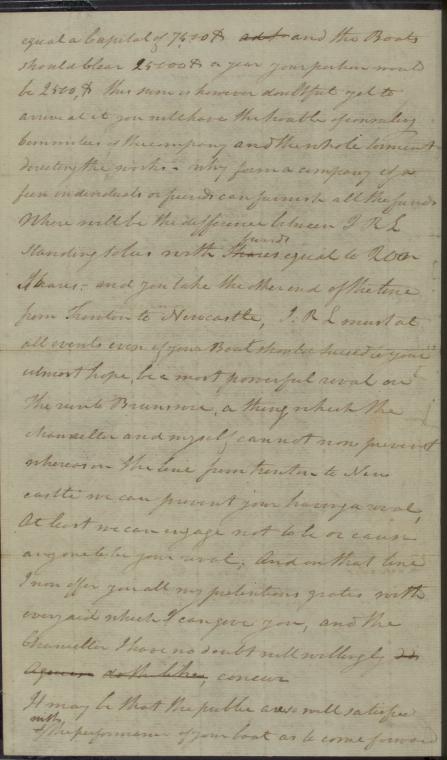 equal a Capital of 7500$ and the Boats
should clear 25000$ a year your portion would
be 2500,$ this sum is however doubtful yet to
arrive at it you will have the trouble of consulting
Committees of the company and the whole torment
directing the works – why form a company if a
few individuals or friends can furnish all the funds
Where will be the difference between J R L
funds
standing to us with shares equal to 200
Shares, – and you take the other end of the line
from Trenton to Newcastle, J. R L must at
all events even if your Boat should succeed to your
utmost hope, be a most powerful rival on
the rout to Brunswic, a thing which the
Chancellor and myself cannot now prevent
whereas on the line from trenton to New
castle we can prevent your having a rival,
At least we can engage not to be or cause
anyone to be your rival; And on that line
I now offer you all my pretentions gratis with
every aid which I can give you, and the
Chancellor I have no doubt will willingly
concur
It may be that the public are so well satisfied
with
the performance of your boat as to come forward